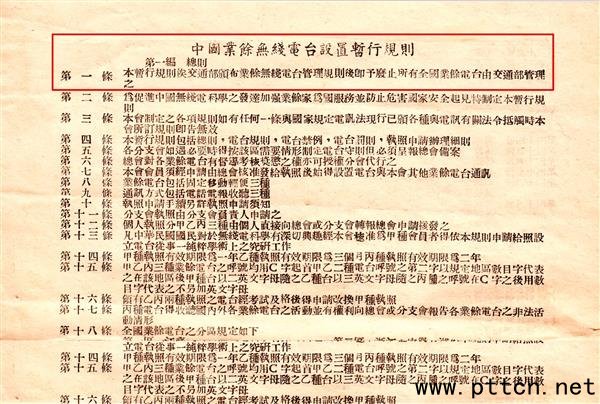 中國業餘無綫電台設置暫行規則
第一編 總則
第一條 本暫行規則俟交通部頒布業餘無綫電台管理規則後卽予廢止所有全國業餘電台由交通部管理
之
第二條 爲促進中國無綫電科學之發達加强業餘家爲國服務並防止危害國家安全起見特制定本暫行規
則
第三條 本會制定之各項規則如有任何一條與國家規定電訊法現行已頒各種與電訊有關法令抵觸時本
會所訂規則卽告無效
第四條 本暫行規則包括總則,電台規則,電台禁例,電台罰則,執照申請辦理細則
第五條 各分支會如遇必要時得按該區需要情形制定電台守則但必須呈報總會備案
第六條 總會對各業餘電台有督導考核獎懲之權亦可授權分會代行之
第七條 本會會員須經申請總會核准發給執照後始得設置電台與本會其他業餘電台通訊
第八條 業餘電台包括固定移動輕便三種
第九條 通訊方式包括電話電報收聽三種
第十條 執照申請手續另詳執照申請須知
第十一條 分支會執照由分支會負責人申請之
第十二條 個人執照分甲乙丙三種由個人直接向總會或分支會轉報總會申請核發之
第十三條 凡中華民國國民對於無綫電科學有深切興趣經本會核准爲甲種會員者得依本規則申請給照設
立電台從事一純粹學術上之究研工作
第十四條 甲種執照有效期限爲一年乙種執照有效期限爲三個月丙種執照有效期限爲二年
第十五條 甲乙丙三種業餘電台之呼號均用C字起首甲乙二種電台之呼號之第二字以規定地區數目字代表
之在該地區後甲種電台以二英文字母隨之乙種電台以三英文字母隨之丙種電台之呼號在C字之後用數
目字代表之不另加英文字母
第十六條 領有乙丙兩種執照之電台經考試及格後得申請改換甲種執照
第十七條 丙種電台得收聽國內外各業餘電台之活動並有權利向總會或分支會報告各業餘電台之非法活
動情形
第十八條 全國業餘電台之分區規定如下
立電台從事一純粹學術上之究研工作
第十四條 甲種執照有效期限爲一年乙種執照有效期限爲三個月丙種執照有效期限爲二年
第十五條 甲乙丙三種業餘電台之呼號均用C字起首甲乙二種電台之呼號之第二字以規定地區數目字代表
之在該地區後甲種電台以二英文字母隨之乙種電台以三英文字母隨之丙種電台
目字代表之不另加英文字母
www.pttcn.net